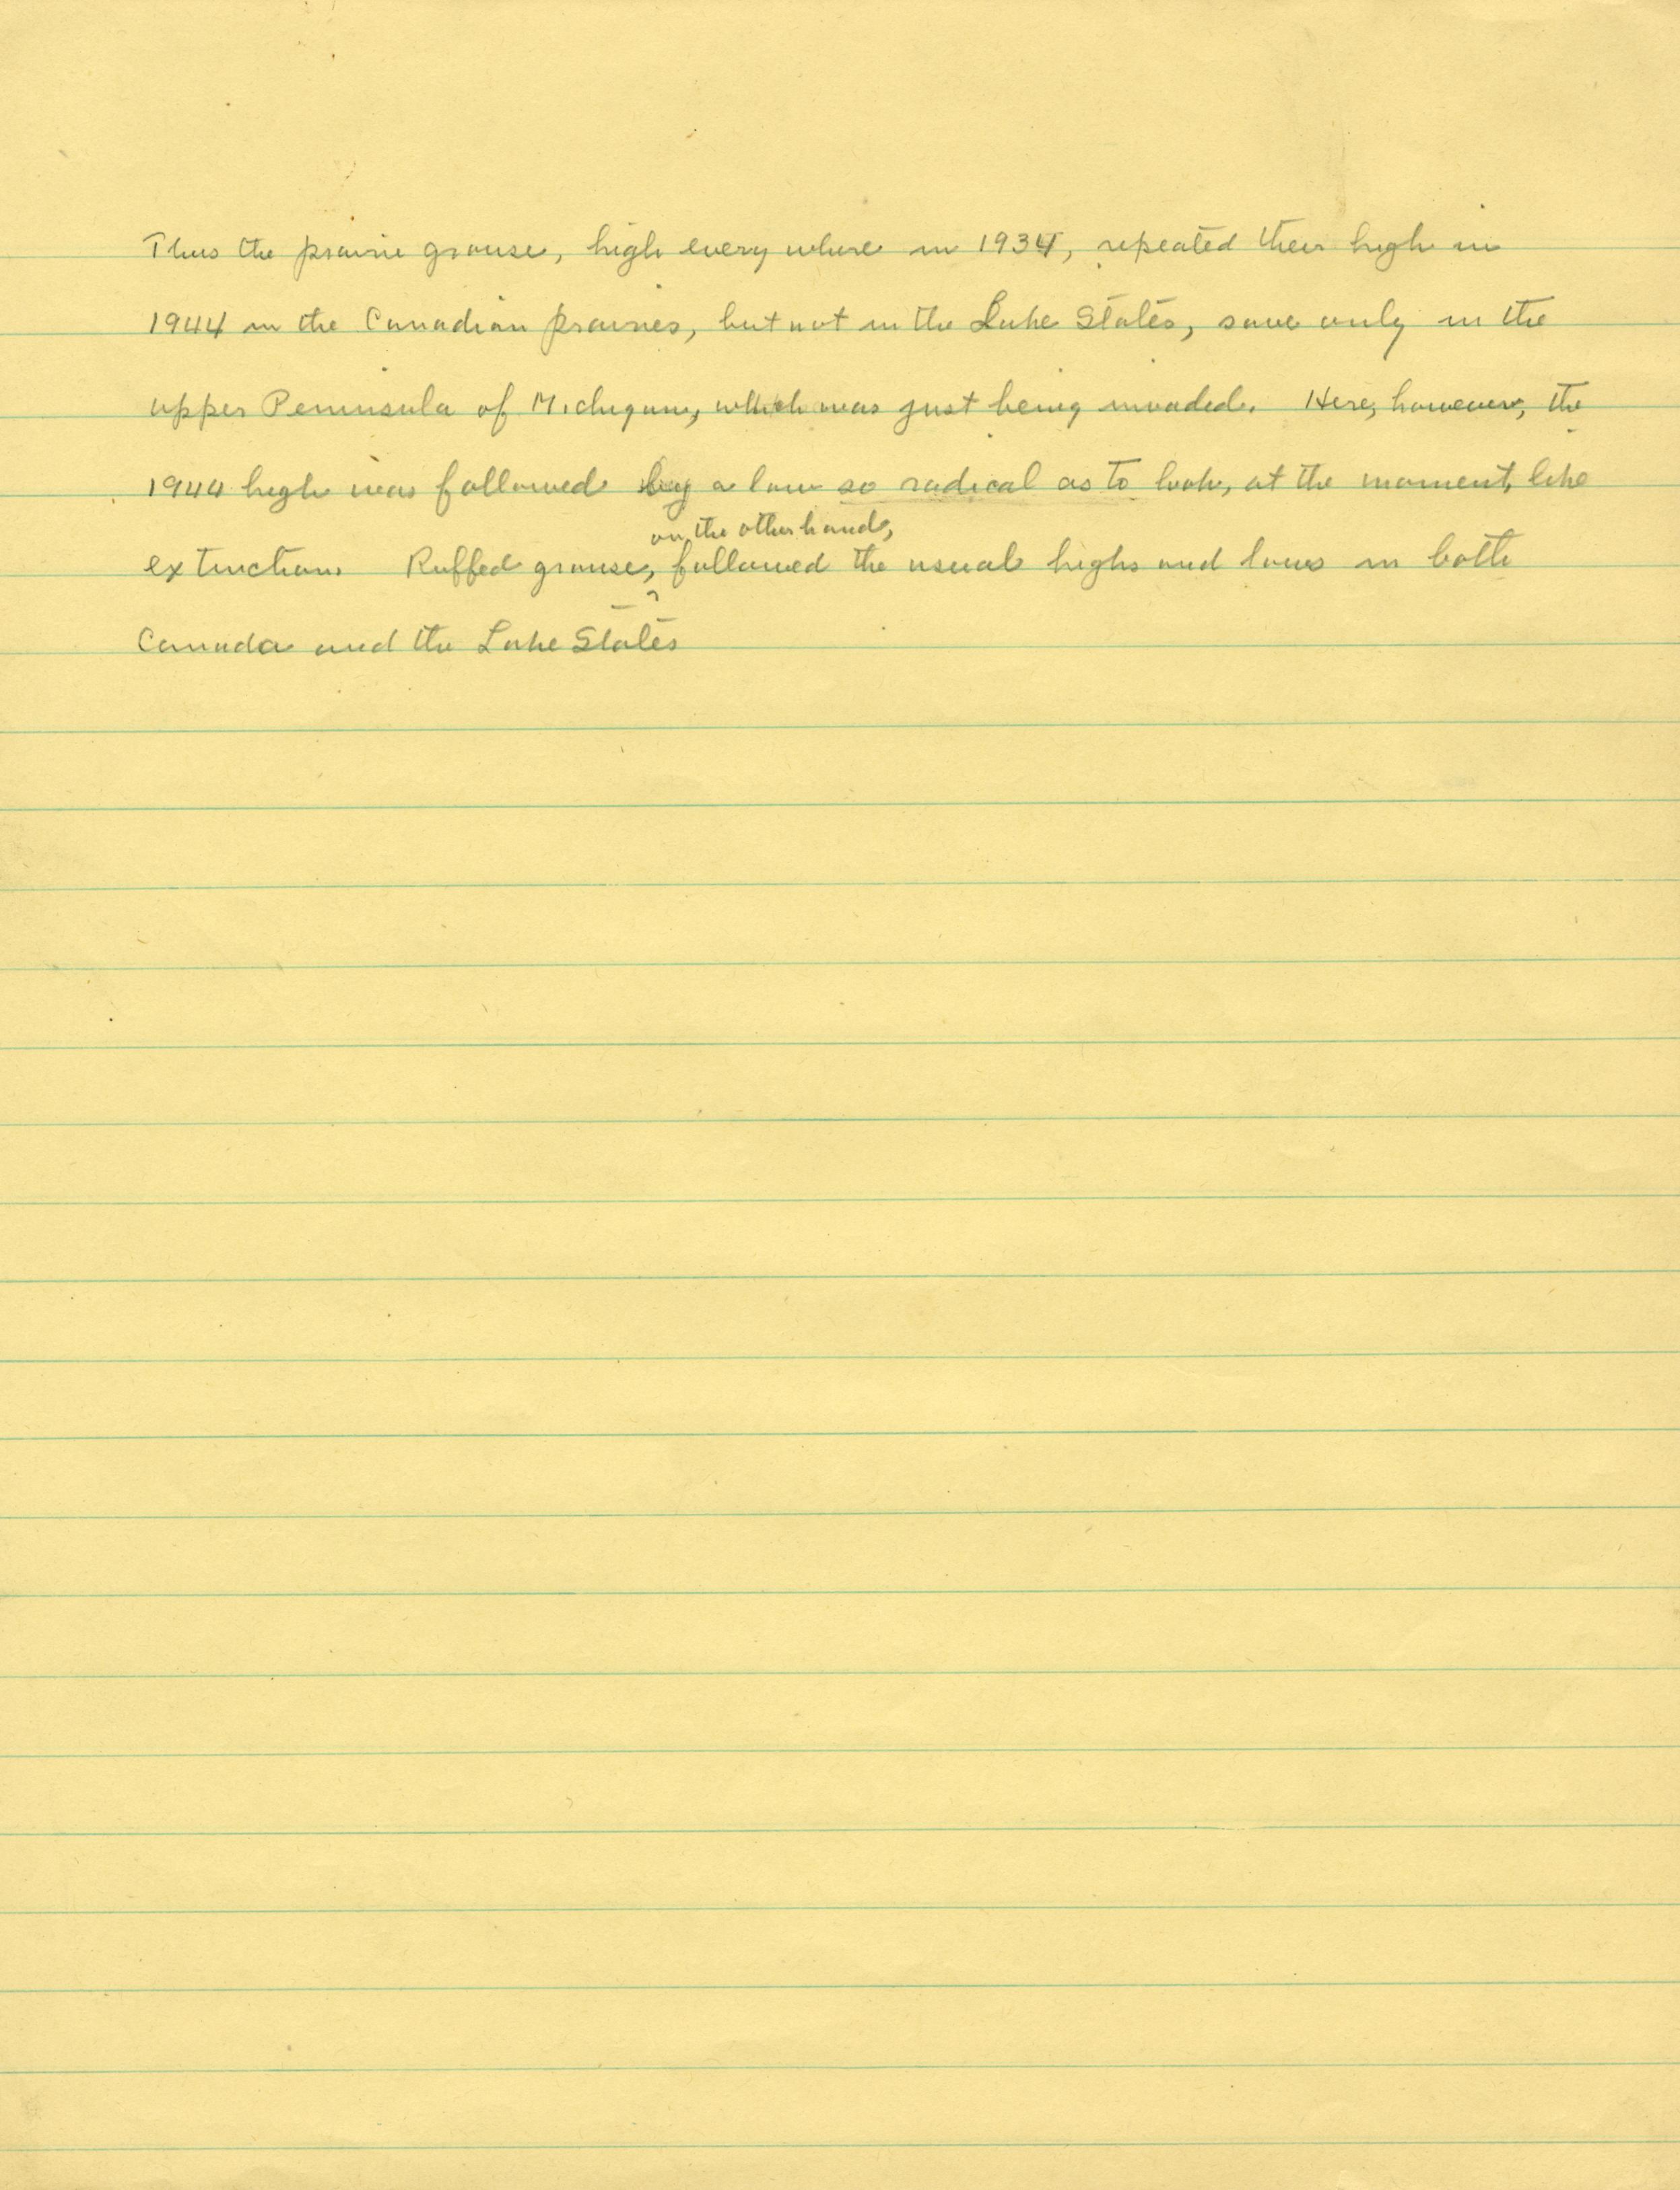 Thus the prairie grouse, high every where in 1934, repeated their high in
1944 in the Canadian prairies, but not in the Lake States, save only in the
upper Peninsula of Michigan, which was just being invaded. Here, however, the
1944 high was followed by a low so radical as to look, at the moment, like
on the other hand,
extinction. Ruffed grouse, followed the usual highs and lows in both
Canada and the Lake States